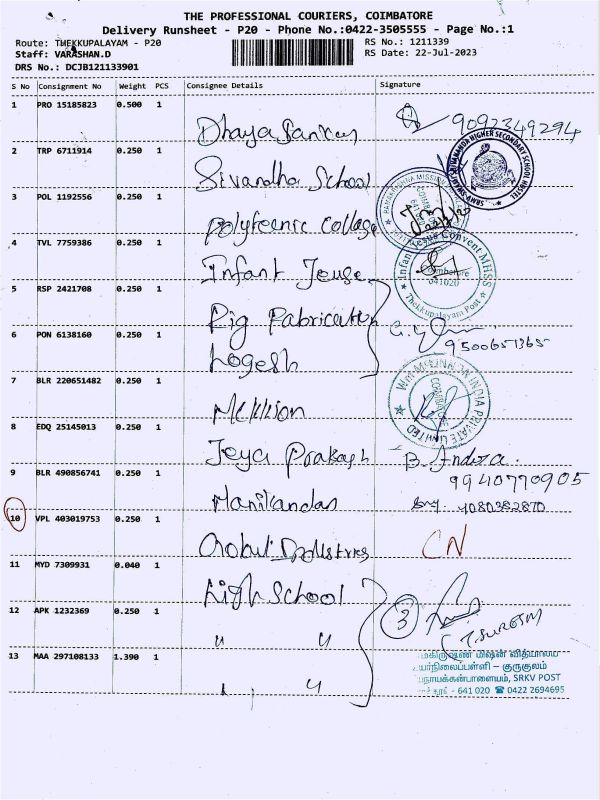 THE PROFESSIONAL COURIERS, COIMBATORE
Delivery Runsheet - P20 - Phone No.:0422-3505555 - Page No.:1
Route: THEKKUPALAYAM - P20
RS No.: 1211339
Staff: VARASHAN.D
RS Date: 22-Jul-2023
DRS No.: DCJB121133901
S No Consignment No Weight PCS Consignee Details Signature
1 PRO 15185823 0.500 1
9092349294
2 TRP 6711914 0.250 1 School
3 POL 1192556 0.250 1 Polytecnic College
4 TVL 7759386 0.250 1 Infant
Infant Jesus Convent MHSS
Coimbatore
641020
Thekkupalayam Post
5 RSP 2421708 0.250 1 Rig Fabrication
6 PON 6138160 0.250 1 Logesh
9500651365
7 BLR 220651482 0.250 1
INDIA PRIVATE LIMITED
8 EDQ 25145013 0.250 1 Jeya Prakash
9940770905
9 BLR 490856741 0.250 1 Manikandan
10 VPL 403019753 0.250 1 CN
11 MYD 7309931 0.040 1 High School
12 APK 1232369 0.250 1 " "
3
T. SURESH
13 MAA 297108133 1.390 1
மிஷன் வித்யாலய
குருகுலம்
SRKV POST
- 641 020 ☎ 0422 2694695